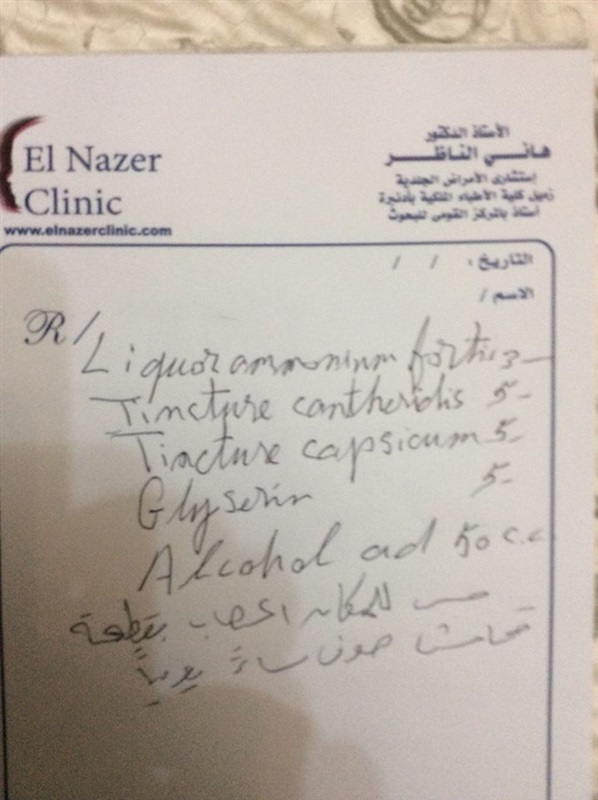 El Nazer
Clinic
www.elnazerclinic.com
الأستاذ الدكتور
هاني الناظر
إستشارى الأمراض الجلدية
زميل كلية الأطباء الملكية بأدنبرة
أستاذ بالمركز القومى للبحوث
التاريخ : / /
الاسم /
R/
Liquor ammonium fortis 3-
Tincture cantheridis 5-
Tincture capsicum 5-
Glyserin 5-
Alcohol ad 50 c.c.
مس للمكان المصاب بقطعة
قماش صوف مساءً يومياً